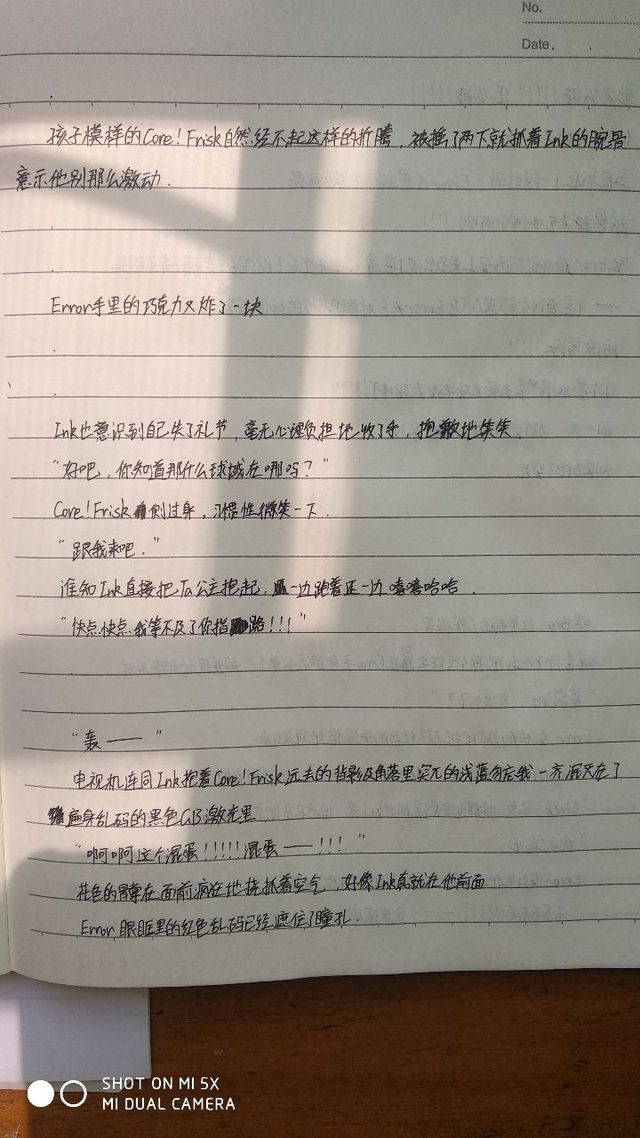 No.
Date.
孩子模样的Core!Frisk自然经不起这样的折腾，被摇了两下就抓着Ink的腕骨
意示他别那么激动.
Error手里的巧克力又炸了一块
Ink也意识到自己失了礼节，毫无心理负担地收了手，抱歉地笑笑.
“好吧，你知道那什么球域在哪吗？”
Core!Frisk侧过身，习惯性微笑一下.
“跟我来吧.”
谁知Ink直接把Ta公主抱起，一边跑着还一边嘻嘻哈哈.
“快点快点我等不及了你指路!!!”
“轰——”
电视机连同Ink抱着Core!Frisk远去的背影及角落里突兀的浅蓝勿忘我一齐泯灭在了
遍身乱码的黑色GB激光里
“啊啊这个混蛋!!!!!混蛋——!!!”
色的骨掌在面前疯狂地挠抓着空气，好像Ink真就在他前面
Error眼眶里的红色乱码已经遮住了瞳孔.
SHOT ON MI 5X
MI DUAL CAMERA